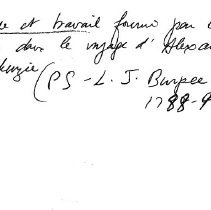 et travail fourni par
dans le voyage d'Alexan
kenzie (PS - L. J. Burpee
1788-9